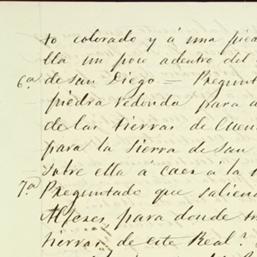 to colorado y á una pied
lla un poco adentro del
6ª de San Diego — Pregunt
piedra redonda para a
de las tierras de Cuen
para la Sierra de San
sobre ella á caer á la
7ª Preguntado que saliend
para donde
tierras de este Real?